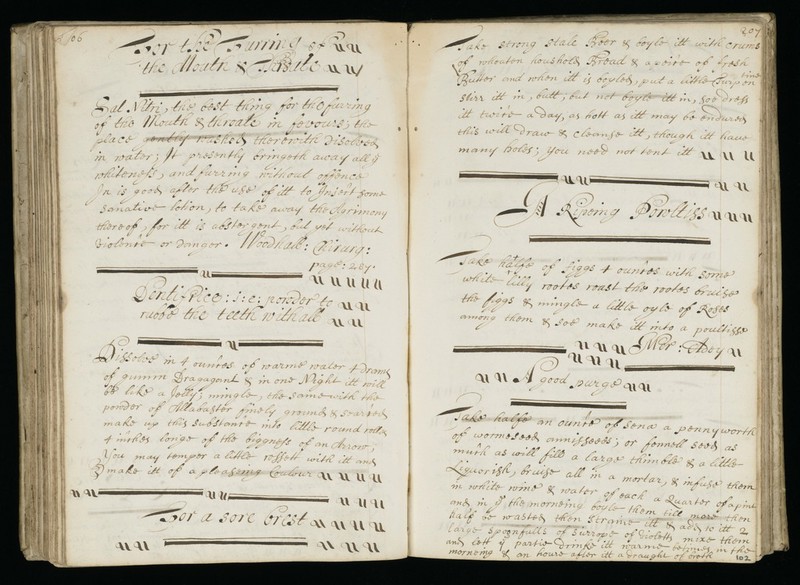 206
For the Furring of
the Mouth & Throate
Sal Nitri, the best thing for the furing
of the Mouth & throate in feavours; the
place gently washed therewith Dissolved
in water; It presently bringeth away all ye
whiteness, and furring without offence
In is good after the use of itt to Insert some
sanative lotion, to take away the Agrimony
thereof, for itt is abstergent, but yet without
violence or danger. Woodhall: Chirurg:
page: 227.
Dentifrice: i:e: powder to
rubb the teeth withall
Dissolve in 4 ounces of warme water 4 drams
of gumm Dragagant & in one Night itt will
be like a Jelly; mingle, the same with the
powder of Allabaster finely ground & searced
make up this substance into little round rolls
4 inches longe of the biggness of an Arrow,
You may temper a little rossett with itt and
make itt of a pleasing Coulour
For a sore brest
207
Take strong stale Beer & boyle itt with crums
of wheaton houshold Bread & a peice of fresh
Butter and when itt is boyled, put a little Turpentine
stirr itt in, butt, but not boyle itt in, soe dress
itt twice a day, as hott as itt may be endured
this will draw & cleanse itt, though itt have
many holes; you need not tent itt
A Ripeing Powltiss
Take halfe of figgs 4 ounces with some
white lilly rootes roast the rootes bruise
the figgs & mingle a little oyle of Roses
among them & soe make itt into a poultisse
Mer: Adey
A good purge
Take halfe an ounce of sena a pennyworth
of wormeseed annisseeds; or fennell seed as
much as will fill a large thimble & a little
Liquorish, bruise all in a mortar, & infuse them
in white wine & water of each a Quarter of a pint
and in ye the morneing boyle them till more then
half be wasted then straine itt & add to itt 2
large spoonfulls of surrope of violets, mixe them
and lett ye partie drinke itt warme betimes in the
morneing & an houre after itt a draught of broth
102